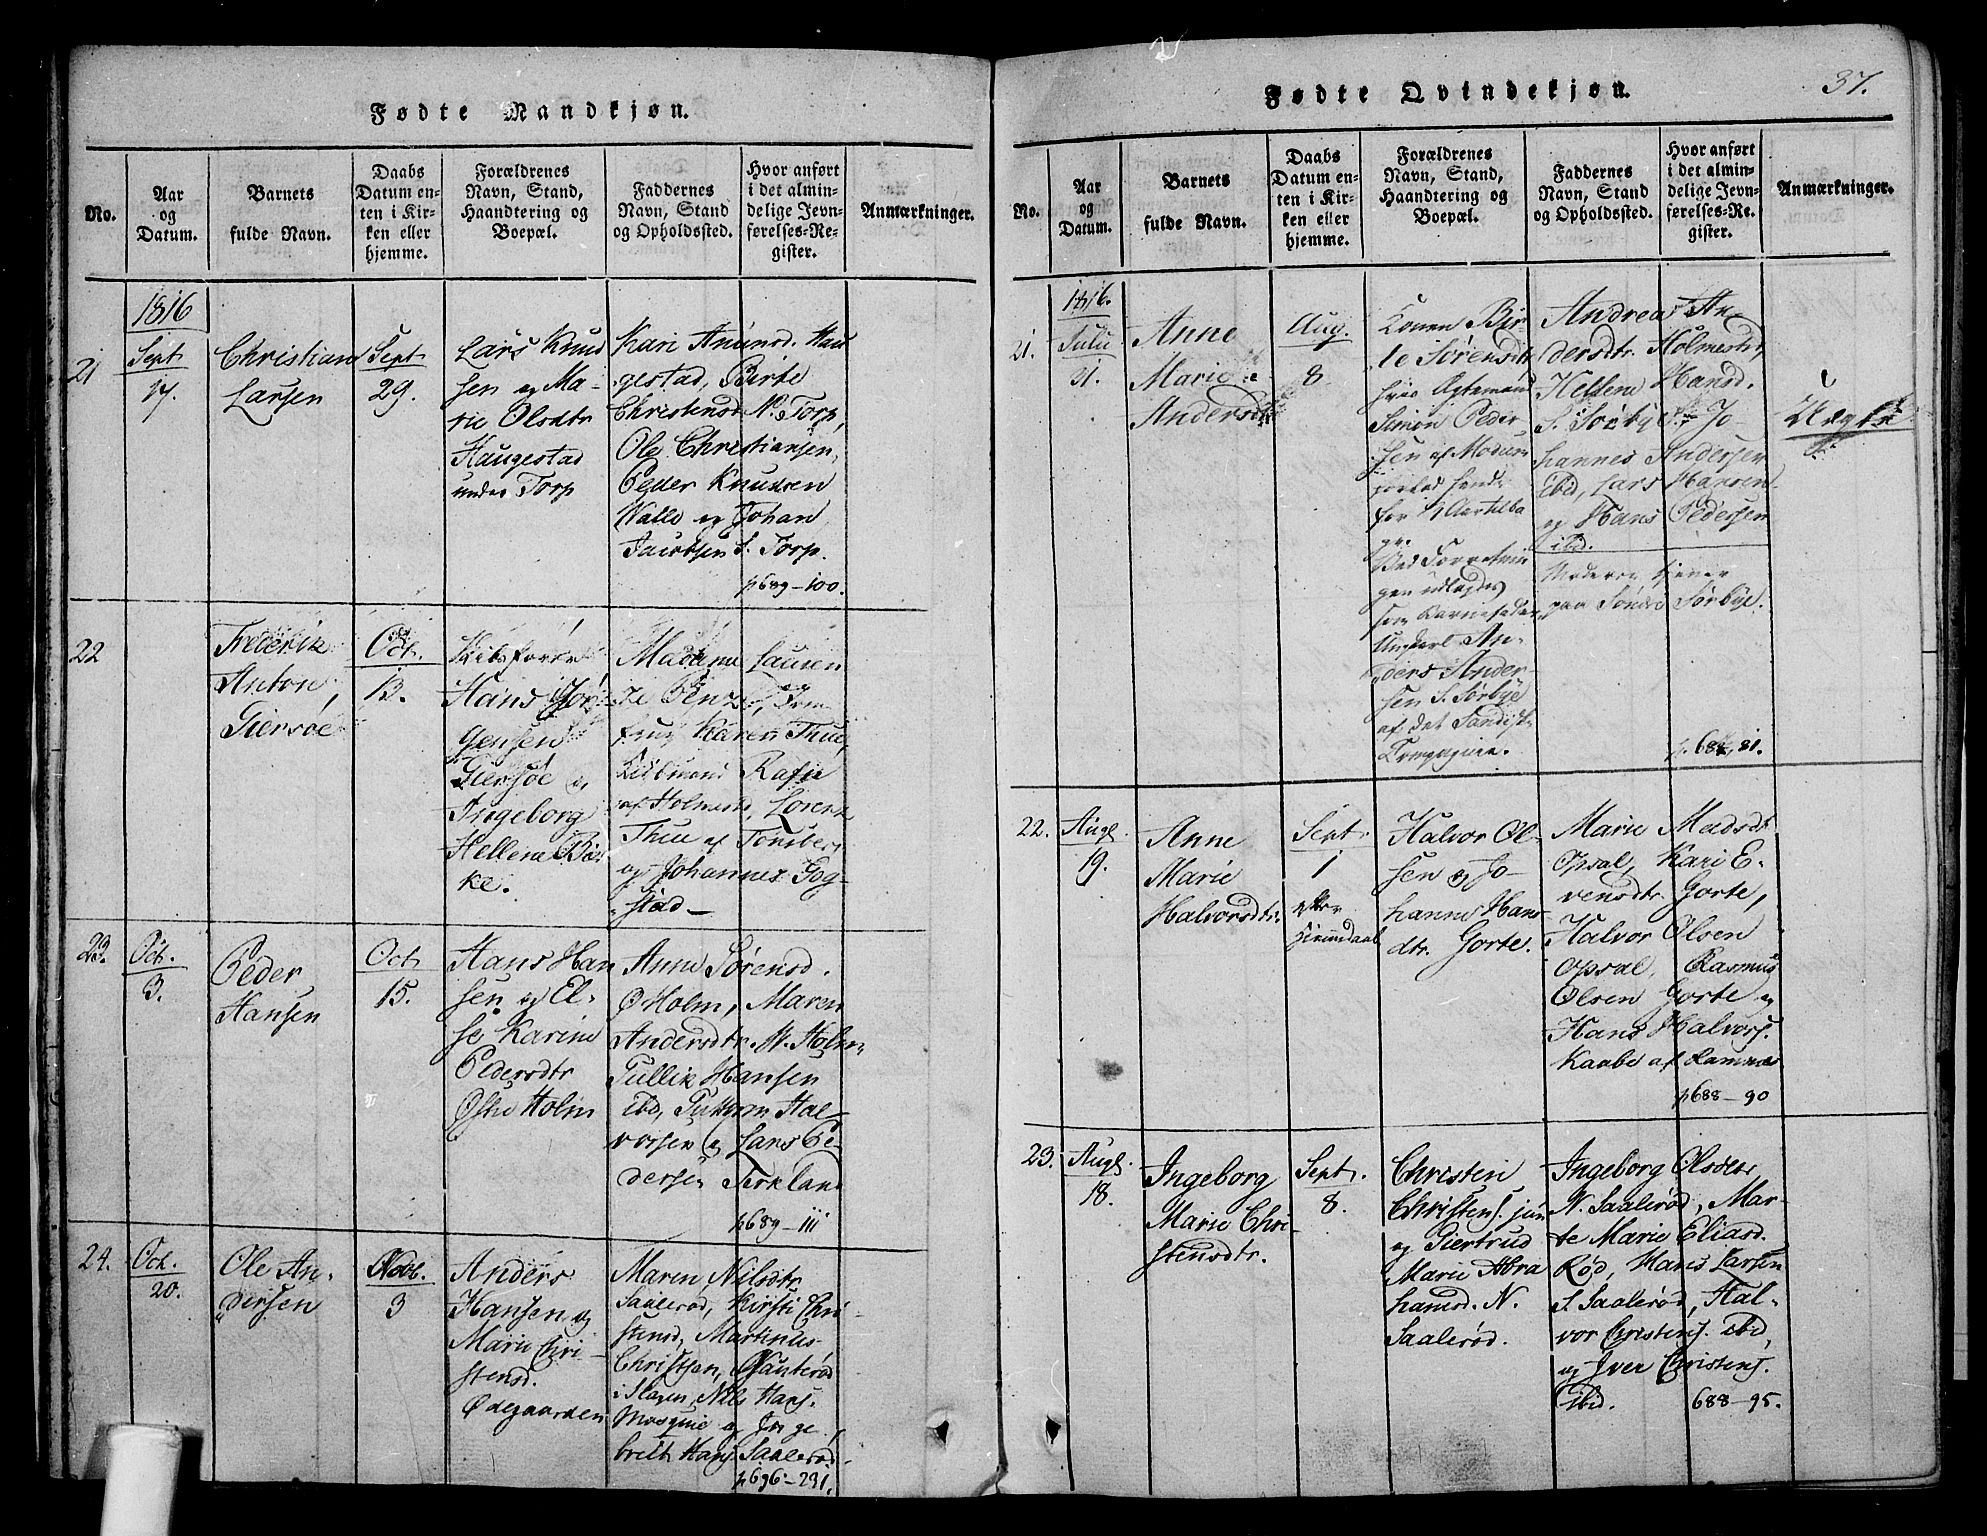 Fødte Mandkjøn.
No.
Aar
og
Datum.
Barnets
fulde Navn.
Daabs
Datum en-
ten i Kir-
ken eller
hjemme.
Forældrenes
Navn, Stand,
Haandtering og
Boepæl.
Faddernes
Navn, Stand
og Opholdssted.
Hvor anført
i det almin-
delige Jevn-
førelses-Re-
gister.
Anmærkninger.
1816
21
Sept.
17.
Christian
Larsen
Sept.
29.
Lars Knud
sen og Ma-
rie Olsdtr
Haugestad
under Torp
Kari Amunsd. Hau
gestad, Birte
Christensd. N. Torp,
Ole Christiansen,
Peder Knudsen
Walle og Johan
Jacobsen S. Torp.
p 689-100.
22
Frederik
Anton
Giersøe
Oct.
13.
Hans Jør
gensen
Giersøe og
Ingeborg
Hellene Bør
ke.
Madame Lauren
ze Penz,
Karen Thue,
af Holmest., Lorenz
Thue af Tønsberg
og Johannes Gog-
stad
23.
Oct.
3.
Peder
Hansen
Oct.
15.
Hans Han
sen og El-
se Karine
Pedersdtr
Østre Holm
Anne Sørensd.
Ø Holm, Maren
Andersdtr. W. Holm
Tullik Hansen
ibd, Guttorm Hal-
vorsen og Hans Pe-
dersen Firkland
p 689-111
24.
Oct.
20.
Ole An-
dersen
Novb.
3
Anders
Hansen og
Marie Chri-
stensd.
Ødegaarden
Maren Nilsdtr.
Saalerød, Kirsti Chri-
stensd, Martinus
Christian,
i Slagen, Nils Hans.
og Inge
brett Hans. Saalerød
p 696-231.
37.
Fødte Qvindekjøn.
No.
Aar
og
Datum.
Barnets
fulde Navn.
Daabs
Datum en-
ten i Kir-
ken eller
hjemme.
Forældrenes
Navn, Stand,
Haandtering og
Boepæl.
Faddernes
Navn, Stand
og Opholdssted.
Hvor anført
i det almin-
delige Jevn-
førelses-Re-
gister.
Anmærkninger.
1816.
21.
Julii
31.
Anne
Marie
Andersdtr
Aug.
8
Konen Bir
te Sørensdtr
hvis Ægtemand
Simon Peder
sen af Modum
for 4 Aar tilba
ge.
Ved Forretnin
gen udlagdes
som Barnefader
Ungkarl An-
ders Ander-
sen S. Sørbye
af det
Compagnie.
Andrea An-
dersdtr. Holmestr,
Hellene Hansd.
S. Sørbye, Jo-
hannes Andersen
ibid, Lars Hansen
og Hans Pedersen
ibd.
Moderen tjener
paa Søndre Sørbye.
p. 688, 81.
Uægte
22.
Augs.
19.
Anne
Marie
Halvorsdtr.
Sept.
1
Halvor Ol-
sen og Jo-
hanne Hans
dtr. Gorte.
Marie Madsdtr
Opsal, Kari E-
vensdtr. Gorte,
Halvor Olsen
Opsal, Rasmus
Olsen Gorte og
Hans Halvors.
Kaabe af Ramnæs
p 688-90
23.
Augs.
18.
Ingeborg
Marie Chri-
stensdtr.
Sept.
8.
Christen
Christens. jun
og Giertrud
Marie Abra
hamsd. N.
Saalerød.
Ingeborg Olsdtr
N. Saalerød, Mar-
te Marie Eliasd.
Rød, Hans Larsen
S. Saalerød, Hal-
vor Christens. ibd,
og Iver Christens.
ibid.
688-95.